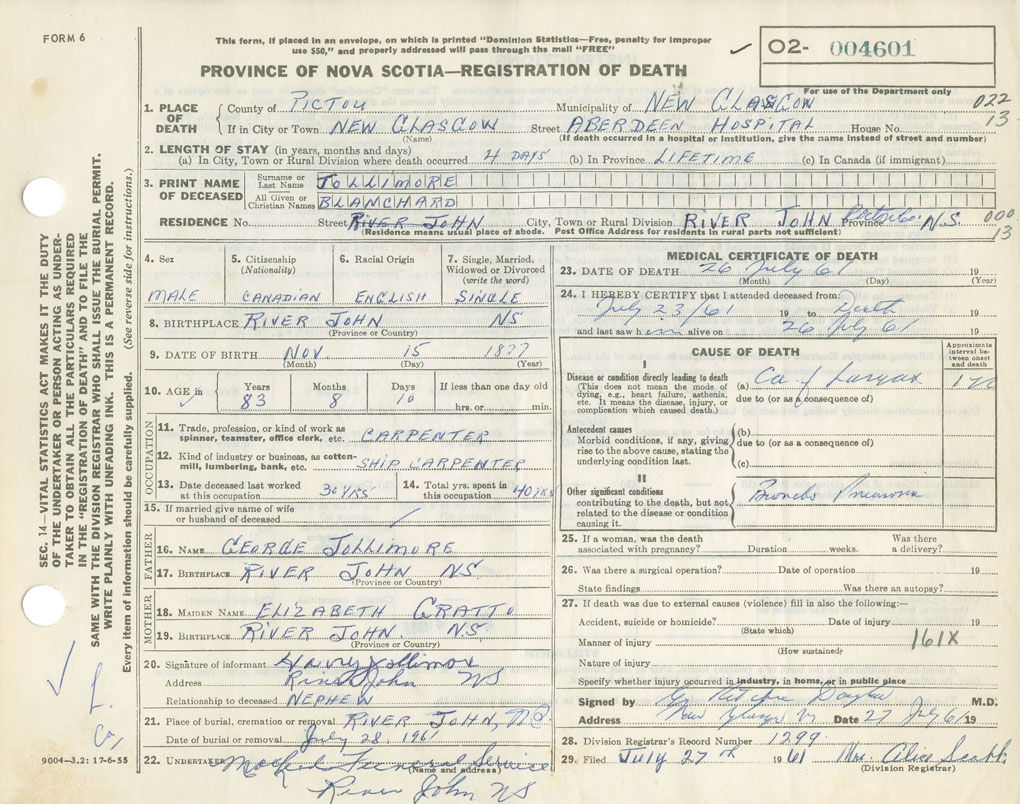 FORM 6
This form, if placed in an envelope, on which is printed "Dominion Statistics—Free, penalty for improper
use $50," and properly addressed will pass through the mail "FREE"
✓ O2- 004601
PROVINCE OF NOVA SCOTIA—REGISTRATION OF DEATH
For use of the Department only
022
13
1. PLACE OF DEATH
County of PICTOU Municipality of NEW GLASGOW
If in City or Town NEW GLASGOW Street ABERDEEN HOSPITAL House No.
(Name) (If death occurred in a hospital or institution, give the name instead of street and number)
2. LENGTH OF STAY (in years, months and days)
(a) In City, Town or Rural Division where death occurred 4 DAYS (b) In Province LIFETIME (c) In Canada (if immigrant)
3. PRINT NAME OF DECEASED
Surname or Last Name JOLLIMORE
All Given or Christian Names BLANCHARD
RESIDENCE No. Street RIVER JOHN City, Town or Rural Division RIVER JOHN Pictou Co. Province N.S. 000
13
(Residence means usual place of abode. Post Office Address for residents in rural parts not sufficient)
4. Sex
MALE
5. Citizenship
(Nationality)
CANADIAN
6. Racial Origin
ENGLISH
7. Single, Married,
Widowed or Divorced
(write the word)
SINGLE
8. BIRTHPLACE RIVER JOHN NS
(Province or Country)
9. DATE OF BIRTH NOV. 15 1877
(Month) (Day) (Year)
10. AGE in ✓
Years 83
Months 8
Days 10
If less than one day old
hrs. or min.
OCCUPATION
11. Trade, profession, or kind of work as
spinner, teamster, office clerk, etc. CARPENTER
12. Kind of industry or business, as cotton-
mill, lumbering, bank, etc. SHIP CARPENTER
13. Date deceased last worked
at this occupation 30 YRS
14. Total yrs. spent in
this occupation 40 YRS
15. If married give name of wife
or husband of deceased /
FATHER
16. NAME GEORGE JOLLIMORE
17. BIRTHPLACE RIVER JOHN NS.
(Province or Country)
MOTHER
18. MAIDEN NAME ELIZABETH GRATTO
19. BIRTHPLACE RIVER JOHN. NS.
(Province or Country)
20. Signature of informant Harvey Jollimore
Address River John NS
Relationship to deceased NEPHEW
21. Place of burial, cremation or removal RIVER JOHN, N.S.
Date of burial or removal July 28, 1961
22. UNDERTAKER Funeral Service
(Name and address)
River John NS
MEDICAL CERTIFICATE OF DEATH
23. DATE OF DEATH 26 July 61 19
(Month) (Day) (Year)
24. I HEREBY CERTIFY that I attended deceased from:
July 23/61 19 to Death 19
and last saw him alive on 26 July 61 19
CAUSE OF DEATH
Approximate
interval be-
tween onset
and death
I
Disease or condition directly leading to death
(This does not mean the mode of
dying, e.g., heart failure, asthenia,
etc. It means the disease, injury, or
complication which caused death.)
(a) Ca of Larynx
due to (or as a consequence of)
Antecedent causes
Morbid conditions, if any, giving
rise to the above cause, stating the
underlying condition last.
(b)
due to (or as a consequence of)
(c)
II
Other significant conditions
contributing to the death, but not
related to the disease or condition
causing it.
Broncho Pneumonia
25. If a woman, was the death
associated with pregnancy? Duration weeks. Was there
a delivery?
26. Was there a surgical operation? Date of operation 19
State findings Was there an autopsy?
27. If death was due to external causes (violence) fill in also the following:—
Accident, suicide or homicide? Date of injury 19
(State which)
Manner of injury 161X
(How sustained)
Nature of injury
Specify whether injury occurred in industry, in home, or in public place
Signed by M.D.
Address New Glasgow Date 27 July 61 19
28. Division Registrar's Record Number 1299
29. Filed July 27th 1961 Mrs. Alice
(Division Registrar)
SEC. 14—VITAL STATISTICS ACT MAKES IT THE DUTY
OF THE UNDERTAKER OR PERSON ACTING AS UNDER-
TAKER TO OBTAIN ALL THE PARTICULARS REQUIRED
IN THE "REGISTRATION OF DEATH" AND TO FILE THE
SAME WITH THE DIVISION REGISTRAR WHO SHALL ISSUE THE BURIAL PERMIT.
WRITE PLAINLY WITH UNFADING INK. THIS IS A PERMANENT RECORD.
Every item of information should be carefully supplied. (See reverse side for instructions.)
✓
L.
Ca,
9004-3.2: 17-6-55